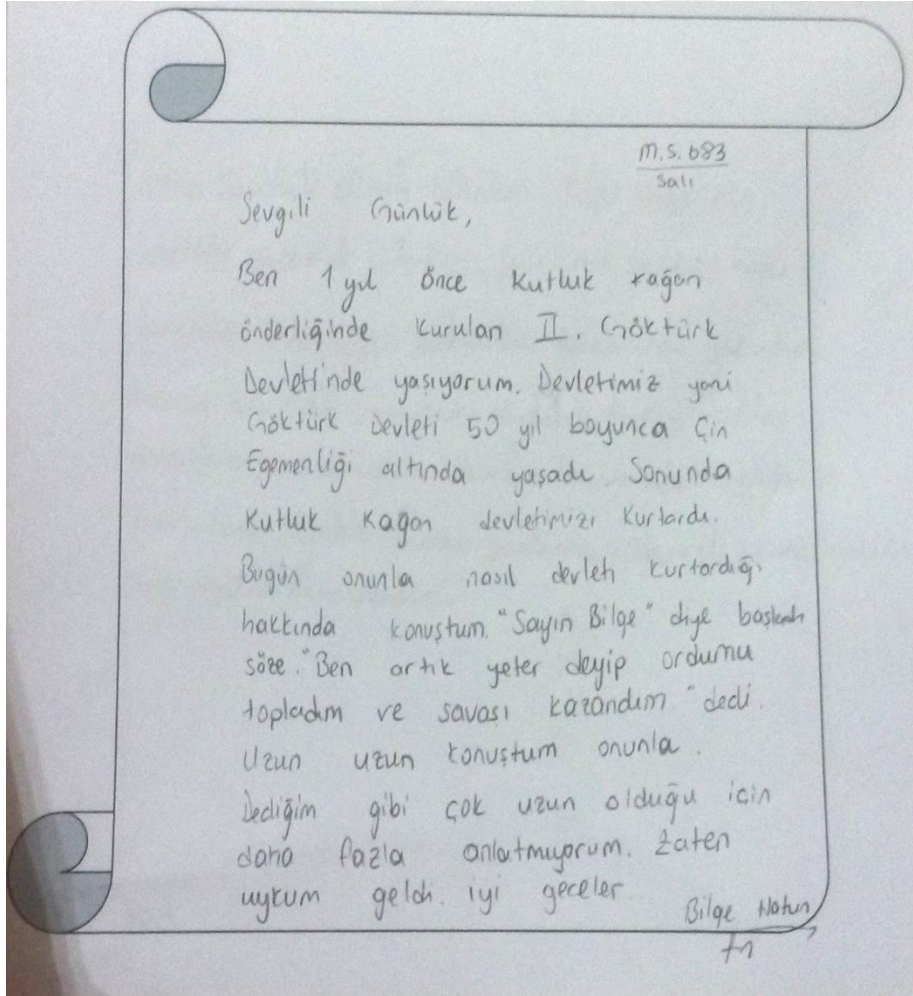 M.S. 683
Salı
Sevgili Günlük,
Ben 1 yıl önce Kutluk Kağan
önderliğinde kurulan II. Göktürk
Devleti'nde yaşıyorum. Devletimiz yani
Göktürk Devleti 50 yıl boyunca Çin
Egemenliği altında yaşadı. Sonunda
Kutluk Kağan devletimizi kurtardı.
Bugün onunla nasıl devleti kurtardığı
hakkında konuştum. "Sayın Bilge" diye başladı
söze. "Ben artık yeter deyip ordumu
topladım ve savaşı kazandım" dedi.
Uzun uzun konuştum onunla.
Dediğim gibi çok uzun olduğu için
daha fazla anlatmıyorum. Zaten
uykum geldi. iyi geceler
Bilge Hatun